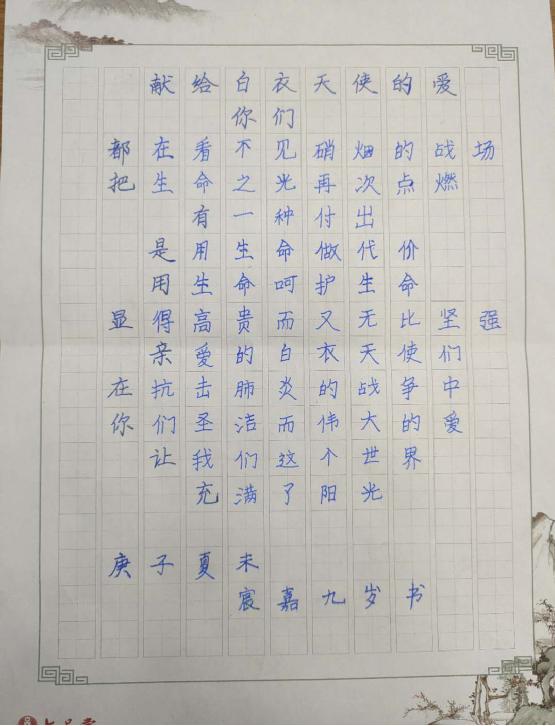 献给白衣天使的爱
你们
都在看不见硝烟的战场
把生命之光再次点燃
有一种付出
是用生命做代价
用生命呵护生命
显得高贵而又无比坚强
亲爱的白衣天使们
在抗击肺炎的战争中
你们圣洁而伟大的爱
让我们这个世界
充满了阳光
庚子夏末
宸嘉九岁书